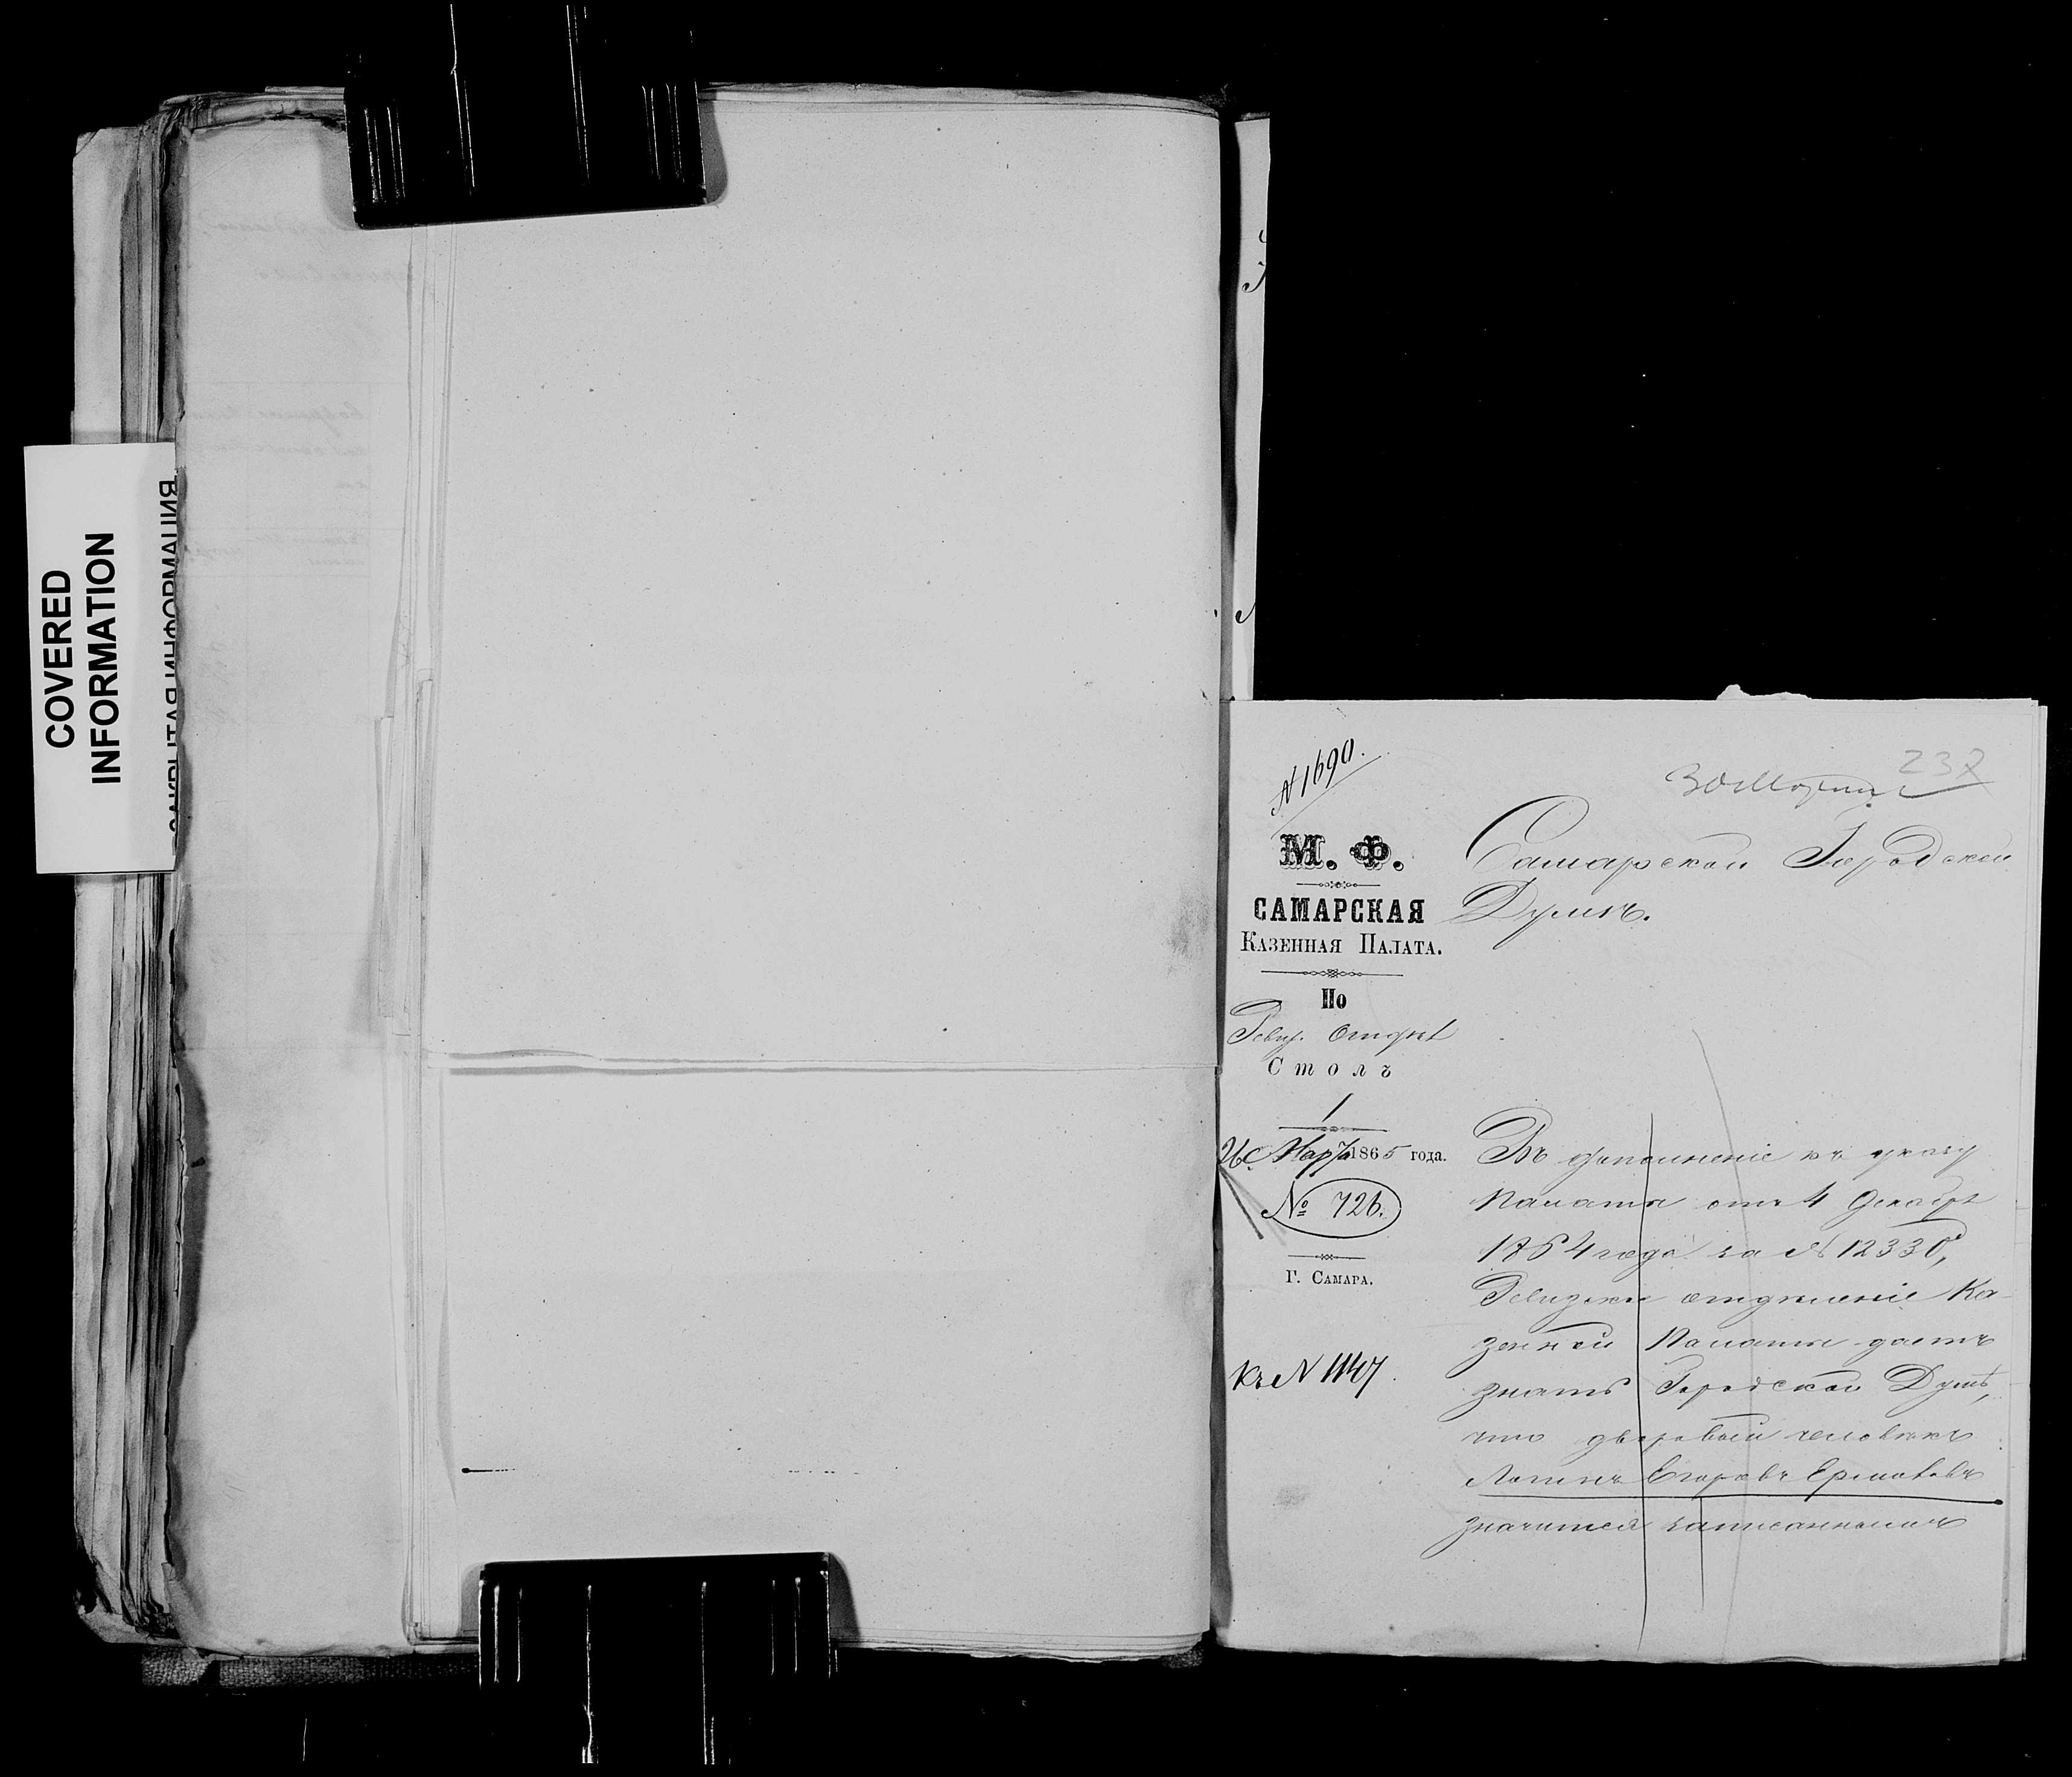 COVERED
INFORMATION
№ 1690.
237
30 Марта
М. Ф.
САМАРСКАЯ
КАЗЕННАЯ ПАЛАТА.
По
Ревиз. Отдѣл
Столъ
1
26 Марта 1865 года.
№ 726.
Г. САМАРА.
Къ № 1147.
Самарской Городской
Думѣ.
Въ дополненіе къ указу
Палаты отъ 4 Декабря
1864 года за № 12330,
Ревизское отдѣленіе Ка-
зенной Палаты даетъ
знать Городской Думѣ,
что дворовый человѣкъ
Логинъ Егоровъ Ермолаевъ
значится записаннымъ